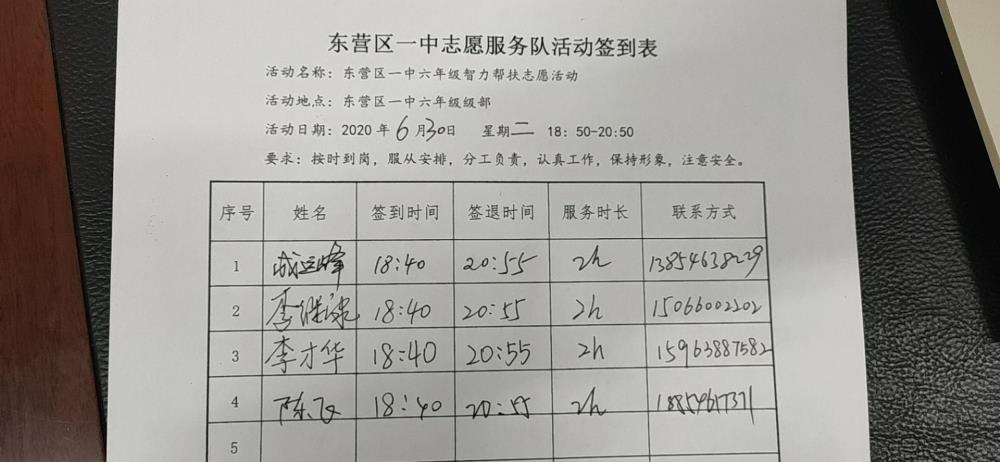 东营区一中志愿服务队活动签到表
活动名称：东营区一中六年级智力帮扶志愿活动
活动地点：东营区一中六年级级部
活动日期：2020 年 6 月 30 日 星期 二 18：50-20:50
要求：按时到岗，服从安排，分工负责，认真工作，保持形象，注意安全。
序号 姓名 签到时间 签退时间 服务时长 联系方式
1 18:40 20:55 2h
2 18:40 20:55 2h 15066002202
3 李才华 18:40 20:55 2h 15963887582
4 陈飞 18:40 20:55 2h
5